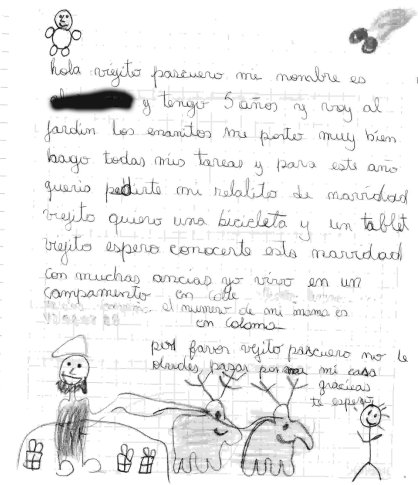 hola viejito pascuero mi nombre es
y tengo 5 años y voy al
jardin los enanitos me porto muy bien
hago todas mis tareas y para este año
queria pedirte mi relalito de navidad
viejito quiero una bicicleta y un tablet
viejito espero conocerte esta navidad
con muchas ancias yo vivo en un
campamento en calle
el numero de mi mama es
en coloma
por favor viejito pascuero no te
olvides pasar por mi casa
gracias
te espero